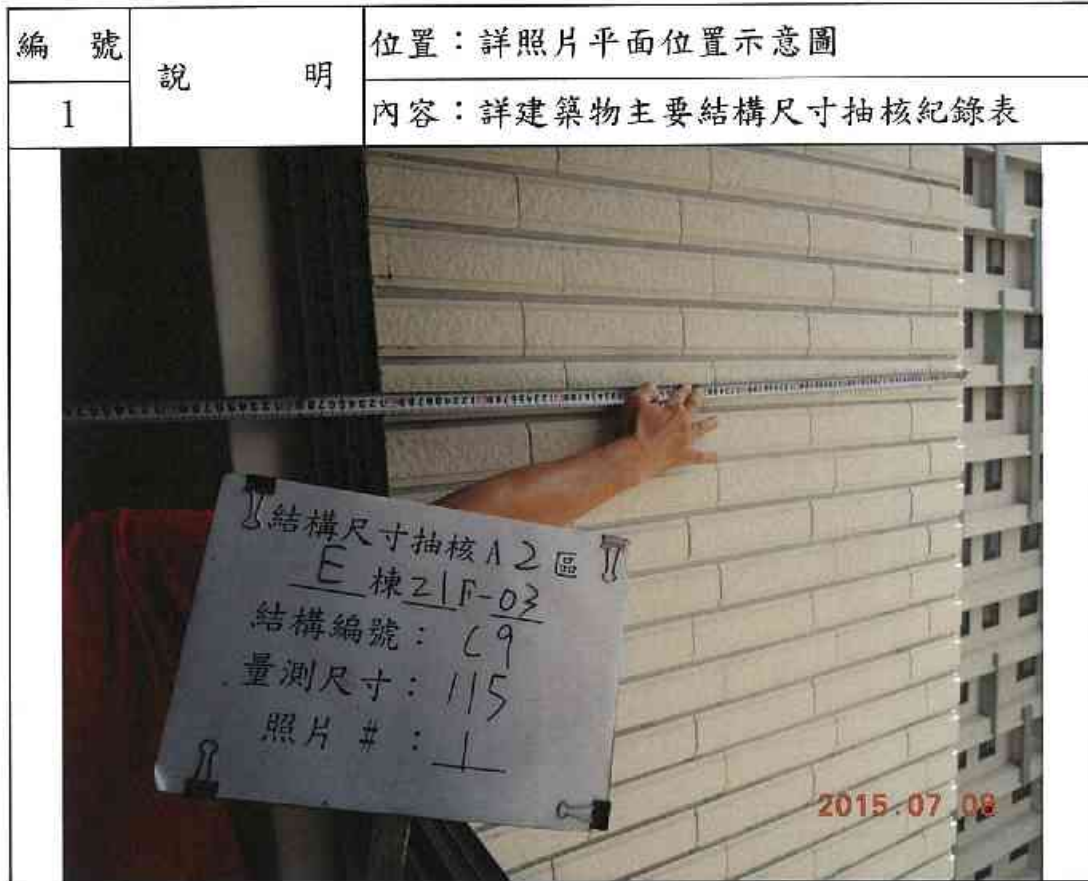 編 號
說 明
位置：詳照片平面位置示意圖
1
內容：詳建築物主要結構尺寸抽核紀錄表
結構尺寸抽核A2區
E棟21F-03
結構編號：C9
量測尺寸：115
照片#：1
2015.07.08